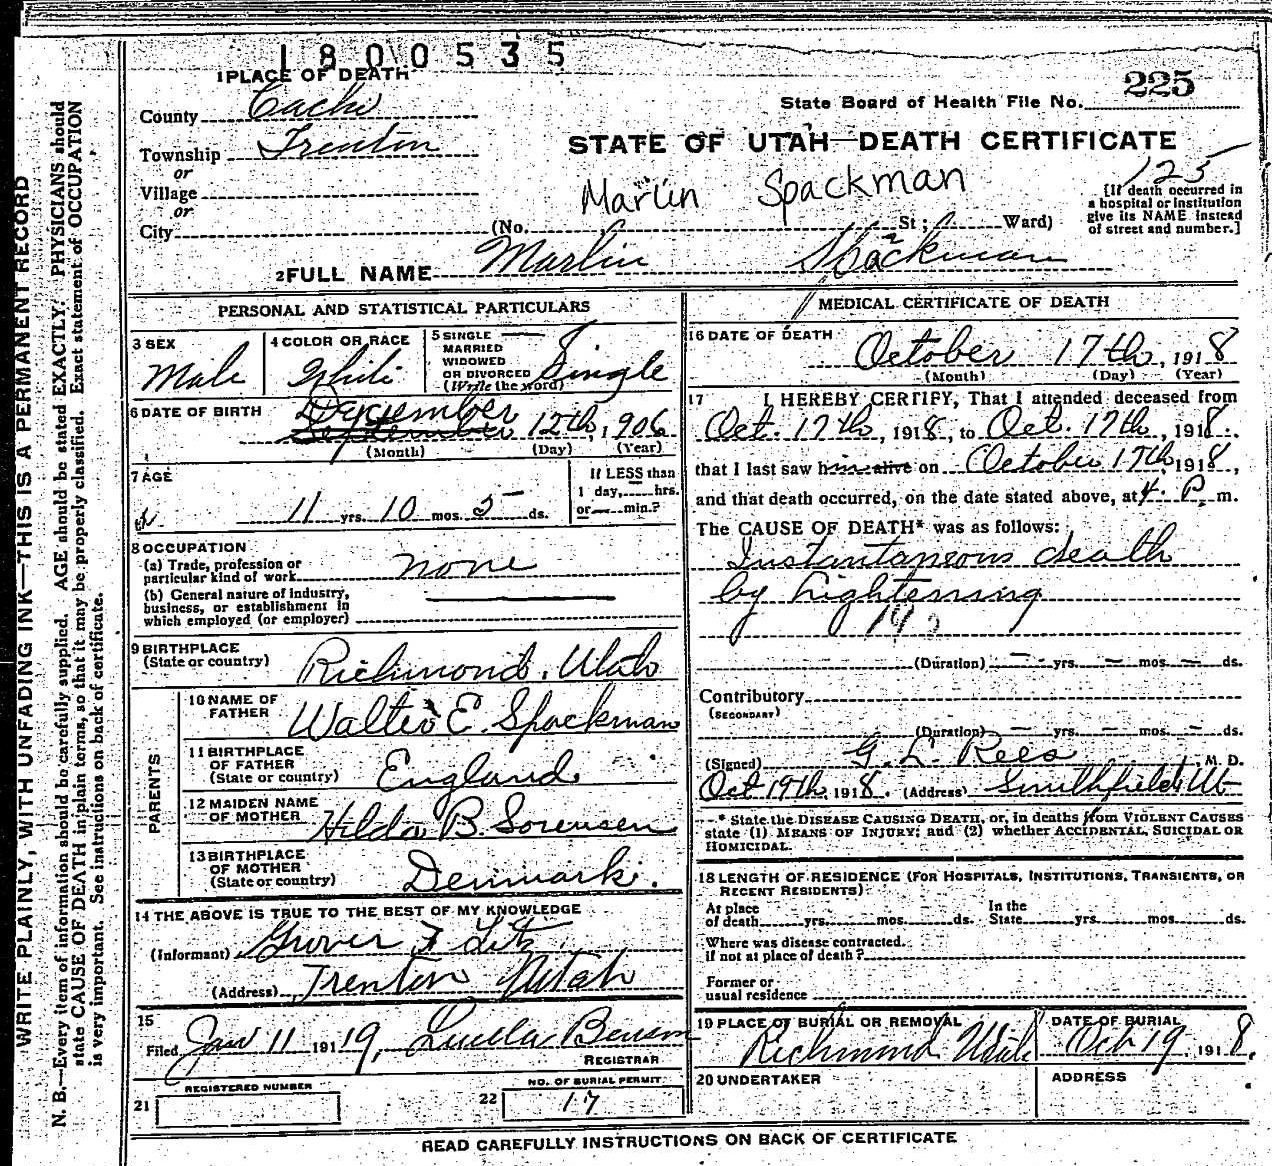 1800535
1 PLACE OF DEATH
225
State Board of Health File No.
County Cache
STATE OF UTAH—DEATH CERTIFICATE
Township Trenton
or
125
Village
Marlin Spackman
[If death occurred in
a hospital or institution
give its NAME instead
of street and number.]
or
City (No. St; Ward)
2 FULL NAME Marlin Spackman
PERSONAL AND STATISTICAL PARTICULARS
3 SEX
Male
4 COLOR OR RACE
White
5 SINGLE
MARRIED
WIDOWED
OR DIVORCED
(Write the word)
Single
6 DATE OF BIRTH
December
September 12th, 1906
(Month) (Day) (Year)
7 AGE
11 yrs. 10 mos. 5 ds.
If LESS than
1 day, hrs.
or min.?
8 OCCUPATION
(a) Trade, profession or
particular kind of work none
(b) General nature of industry,
business, or establishment in
which employed (or employer)
9 BIRTHPLACE
(State or country) Richmond, Utah
PARENTS
10 NAME OF
FATHER Walter E. Spackman
11 BIRTHPLACE
OF FATHER
(State or country) England
12 MAIDEN NAME
OF MOTHER Hilda B. Sorensen
13 BIRTHPLACE
OF MOTHER
(State or country) Denmark.
14 THE ABOVE IS TRUE TO THE BEST OF MY KNOWLEDGE
(Informant) Grover F Litz
(Address) Trenton Utah
15
Filed Jan 11 1919, Luella Benson
REGISTRAR
REGISTERED NUMBER
21
NO. OF BURIAL PERMIT
22 17
MEDICAL CERTIFICATE OF DEATH
16 DATE OF DEATH
October 17th, 1918
(Month) (Day) (Year)
17 I HEREBY CERTIFY, That I attended deceased from
Oct. 17th, 1918, to Oct. 17th, 1918.
that I last saw him alive on October 17th, 1918,
and that death occurred, on the date stated above, at 4. P. m.
The CAUSE OF DEATH* was as follows:
Instantaneous death
by Lightening
(Duration) — yrs. — mos. — ds.
Contributory
(SECONDARY)
(Duration) — yrs. — mos. — ds.
(Signed) G. L. Rees M. D.
Oct 19th, 1918. (Address) Smithfield Ut
* State the DISEASE CAUSING DEATH, or, in deaths from VIOLENT CAUSES
state (1) MEANS OF INJURY; and (2) whether ACCIDENTAL, SUICIDAL OR
HOMICIDAL.
18 LENGTH OF RESIDENCE (FOR HOSPITALS, INSTITUTIONS, TRANSIENTS, OR
RECENT RESIDENTS)
At place In the
of death yrs. mos. ds. State yrs. mos. ds.
Where was disease contracted.
if not at place of death?
Former or
usual residence
19 PLACE OF BURIAL OR REMOVAL
Richmond Utah
DATE OF BURIAL
Oct 19, 1918.
20 UNDERTAKER
ADDRESS
READ CAREFULLY INSTRUCTIONS ON BACK OF CERTIFICATE
WRITE PLAINLY, WITH UNFADING INK—THIS IS A PERMANENT RECORD
N. B.—Every item of information should be carefully supplied. AGE should be stated EXACTLY. PHYSICIANS should
state CAUSE OF DEATH in plain terms, so that it may be properly classified. Exact statement of OCCUPATION
is very important. See instructions on back of certificate.